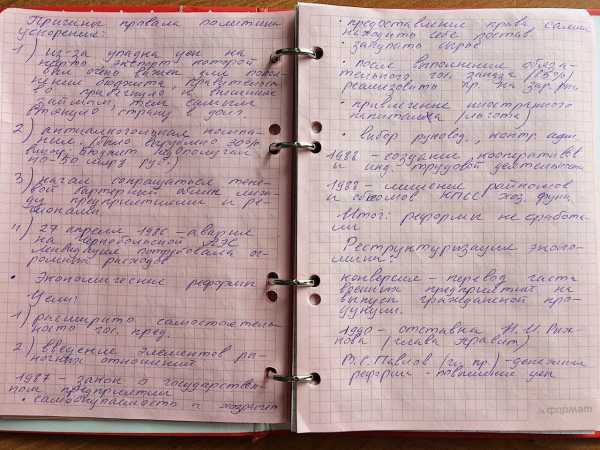 Причины провала политики
ускорения:
1) из-за упадка цен на
нефть экспорт которой
был очень важен для попол
нения бюджета, правительст
во прибегнуло к внешним
займам, тем самым
втянуло страну в долг.
2) антиалкогольная компа-
ния. (было вырублено 30%
виногр. бюджет недополучил
40-50 млрд руб.)
3) начал сокращаться тене-
вой бартерный обмен меж
ду предприятиями и ре-
гионами.
4) 27 апреля 1986 - авария
на Чернобольской АЭС
ликвидация потребовала ог-
ромных расходов
• Экономические реформы
Цели:
1) расширить самостоятель
ность гос. пред.
2) введение элементов ры
ночных отношений
1987 - закон о государствен-
ном предприятии
• самоокупаемость и хозрасчет
• предоставление права самим
находить себе постав.
• закупать сырье
• после выполнения обяза-
тельного гос. заказа (85%)
реализовать пр. на
• привлечение иностранного
капитала (льготы)
• выбор руковод., контр. адм.
1988 - создание кооперативов
и инд. трудовой деятельности
1988 - лишение райкомов
и обкомов КПСС хоз. функ.
Итог: реформы не сработа
ли
Реструктуризация эконо-
мики:
конверсия - перевод части
военных предприятий на
выпуск гражданской про-
дукции.
1990 - отставка Н.И. Рыж-
кова (глава правит)
В.С. Павлов (гл. пр.) - денежная
реформа - повышение цен
формат